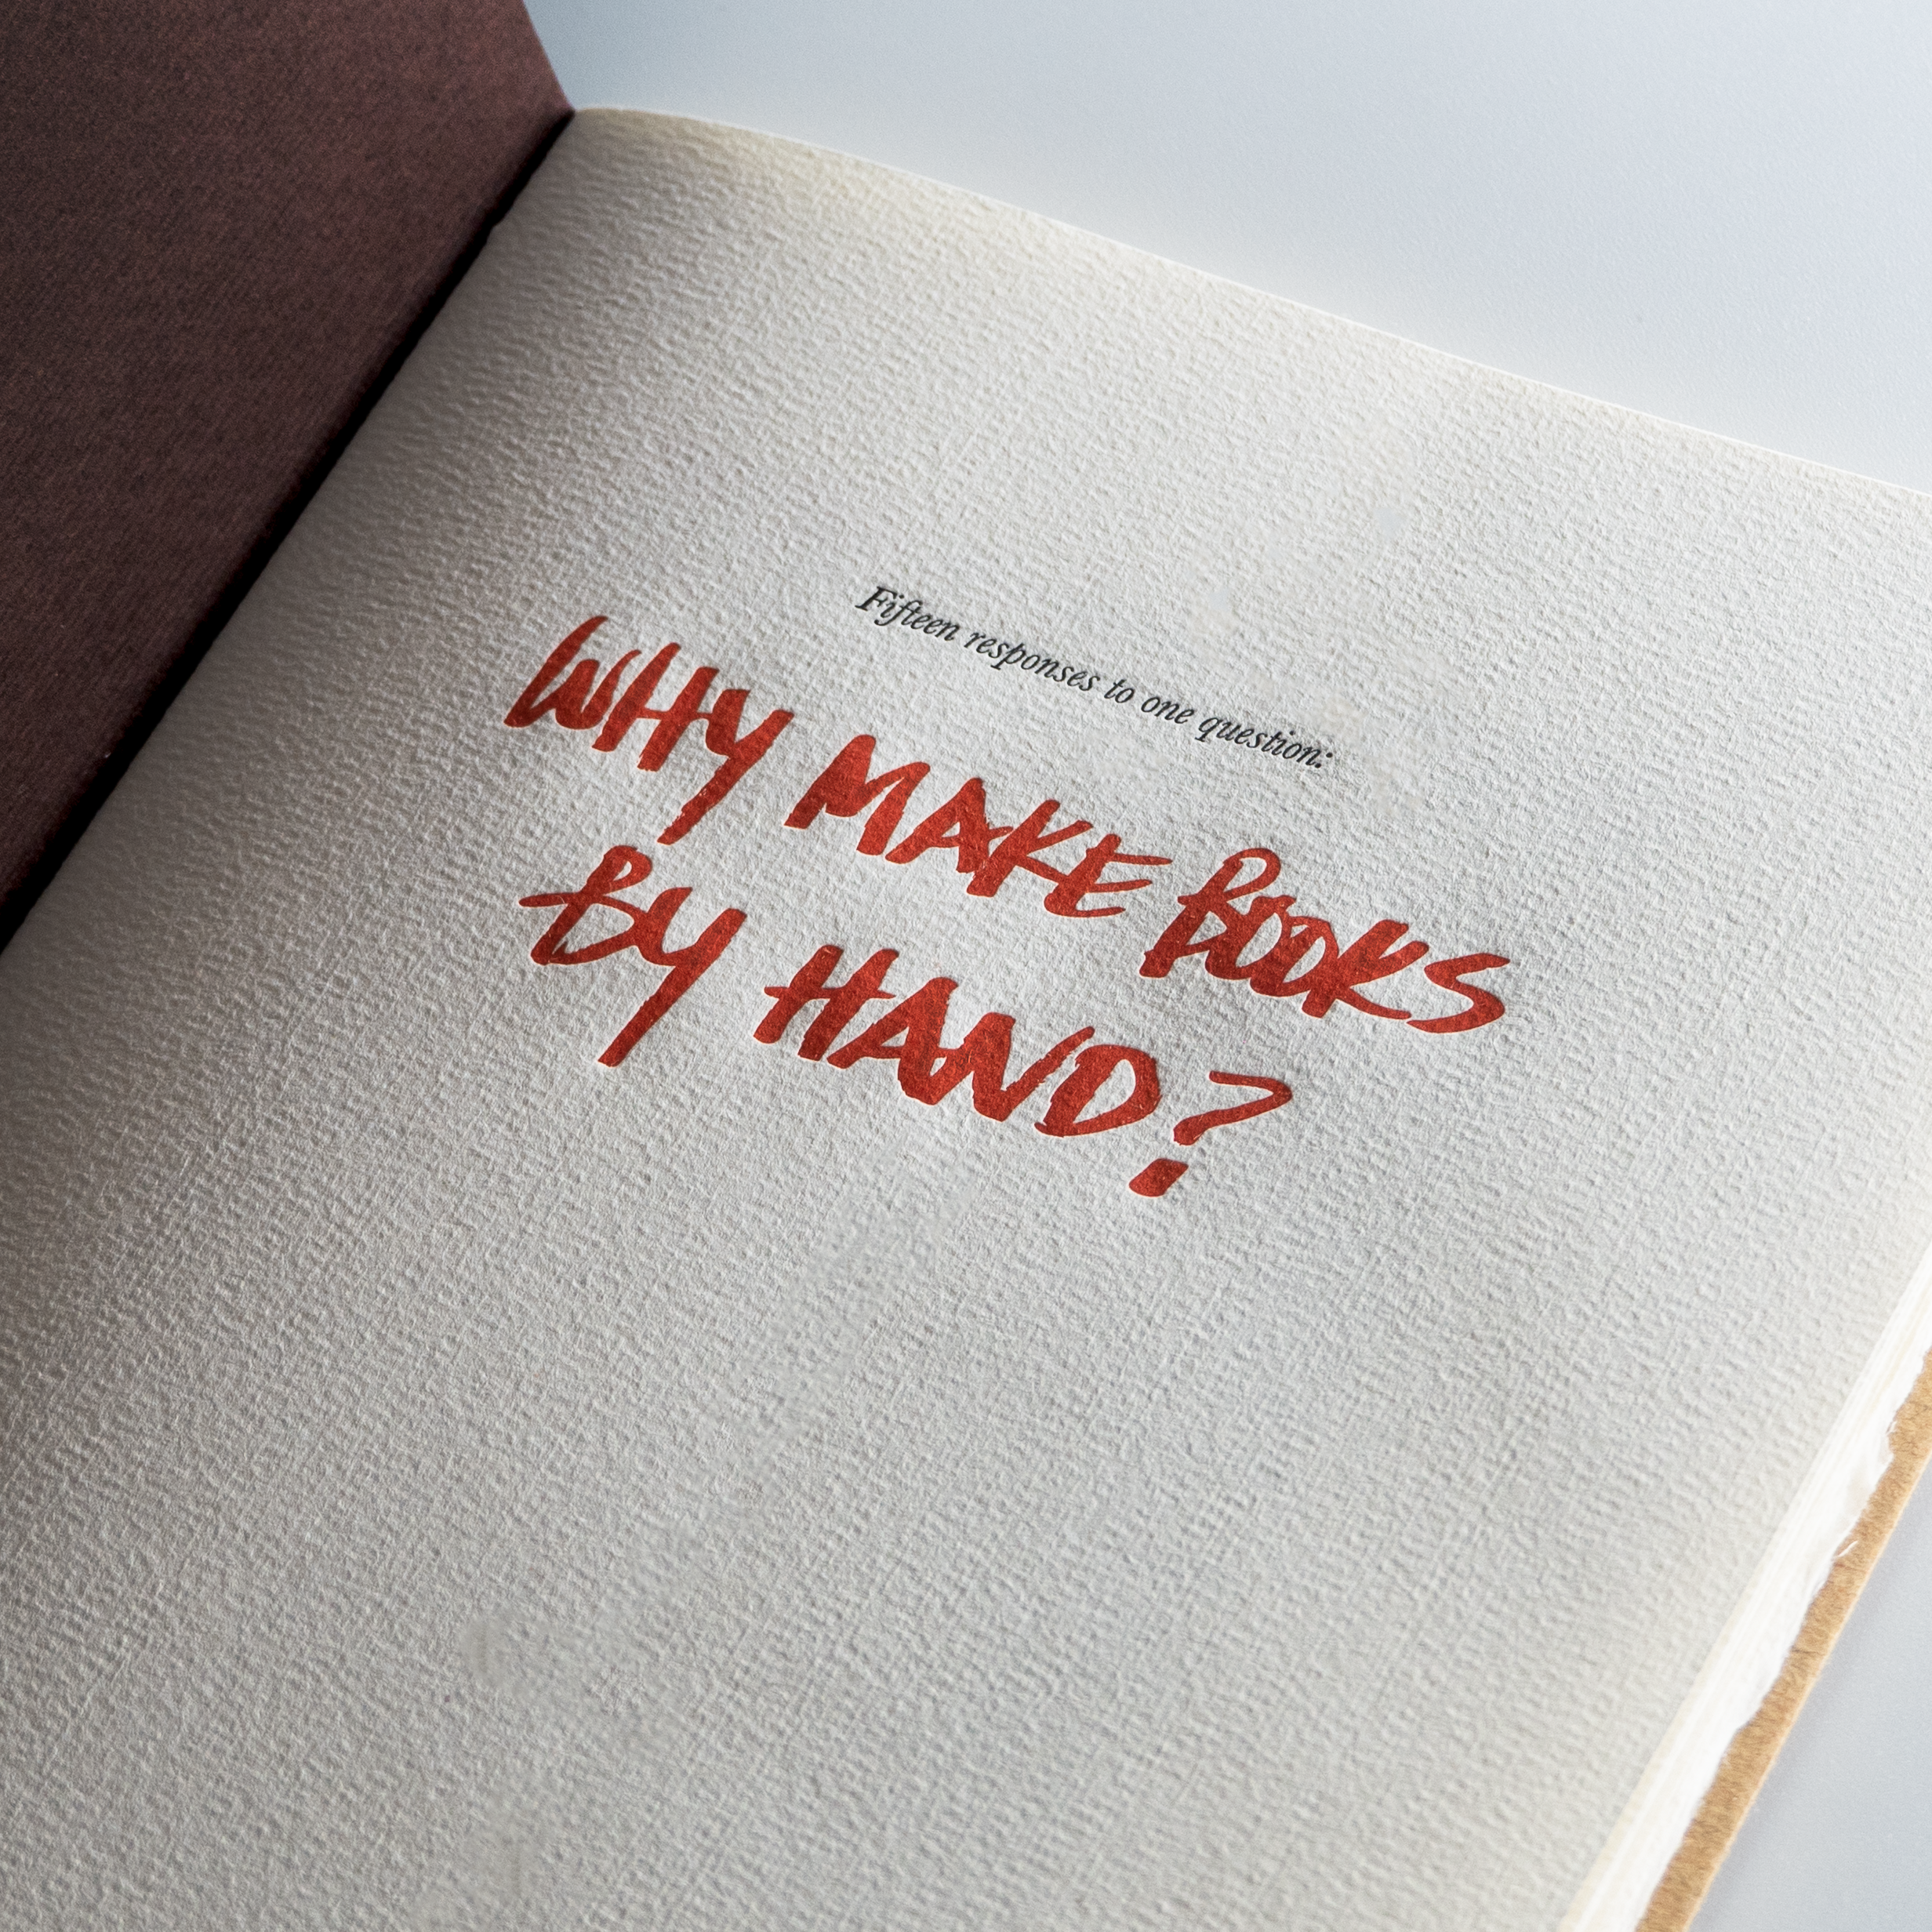 Fifteen responses to one question:
WHY MAKE BOOKS
BY HAND?